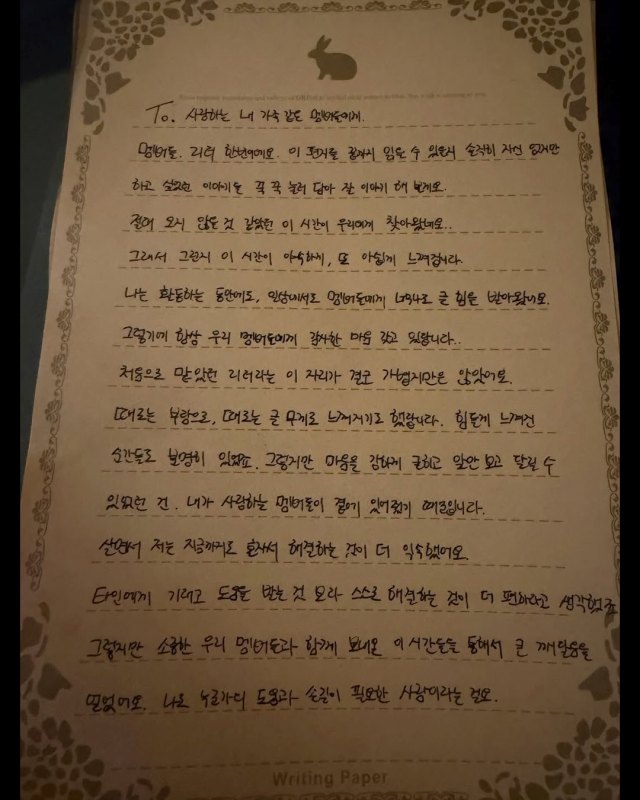 To. 사랑하는 내 가족 같은 멤버들에게.
멤버들. 리더 한번이에요. 이 편지를 끝까지 읽을 수 있을지 솔직히 자신 없지만
하고 싶었던 이야기들 꾹 꾹 눌러 담아 잘 이야기 해 볼게요.
절대 오지 않을 것 같았던 이 시간이 우리에게 찾아왔네요..
그래서 그런지 이 시간이 야속하게, 또 아쉽게 느껴집니다.
나는 활동하는 동안에도, 일상에서도 멤버들에게 너무나도 큰 힘을 받아왔어요.
그렇기에 항상 우리 멤버들에게 감사한 마음 갖고 있답니다..
처음으로 맡았던 리더라는 이 자리가 결코 가볍지만은 않았어요.
때로는 부담으로, 때로는 큰 무게로 느껴지기도 했답니다. 힘들게 느껴진
순간들도 분명히 있었죠. 그렇지만 마음을 강하게 굳히고 앞만 보고 달릴 수
있었던 건. 내가 사랑하는 멤버들이 곁에 있어줬기 때문입니다.
살면서 저는 지금까지도 혼자서 해결하는 것이 더 익숙했어요.
타인에게 기대고 도움을 받는 것 보다 스스로 해결하는 것이 더 편하다고 생각했죠
그렇지만 소중한 우리 멤버들과 함께 보내온 이 시간들을 통해서 큰 깨달음을
얻었어요. 나도 누군가의 도움과 손길이 필요한 사람이라는 걸요.
Writing Paper